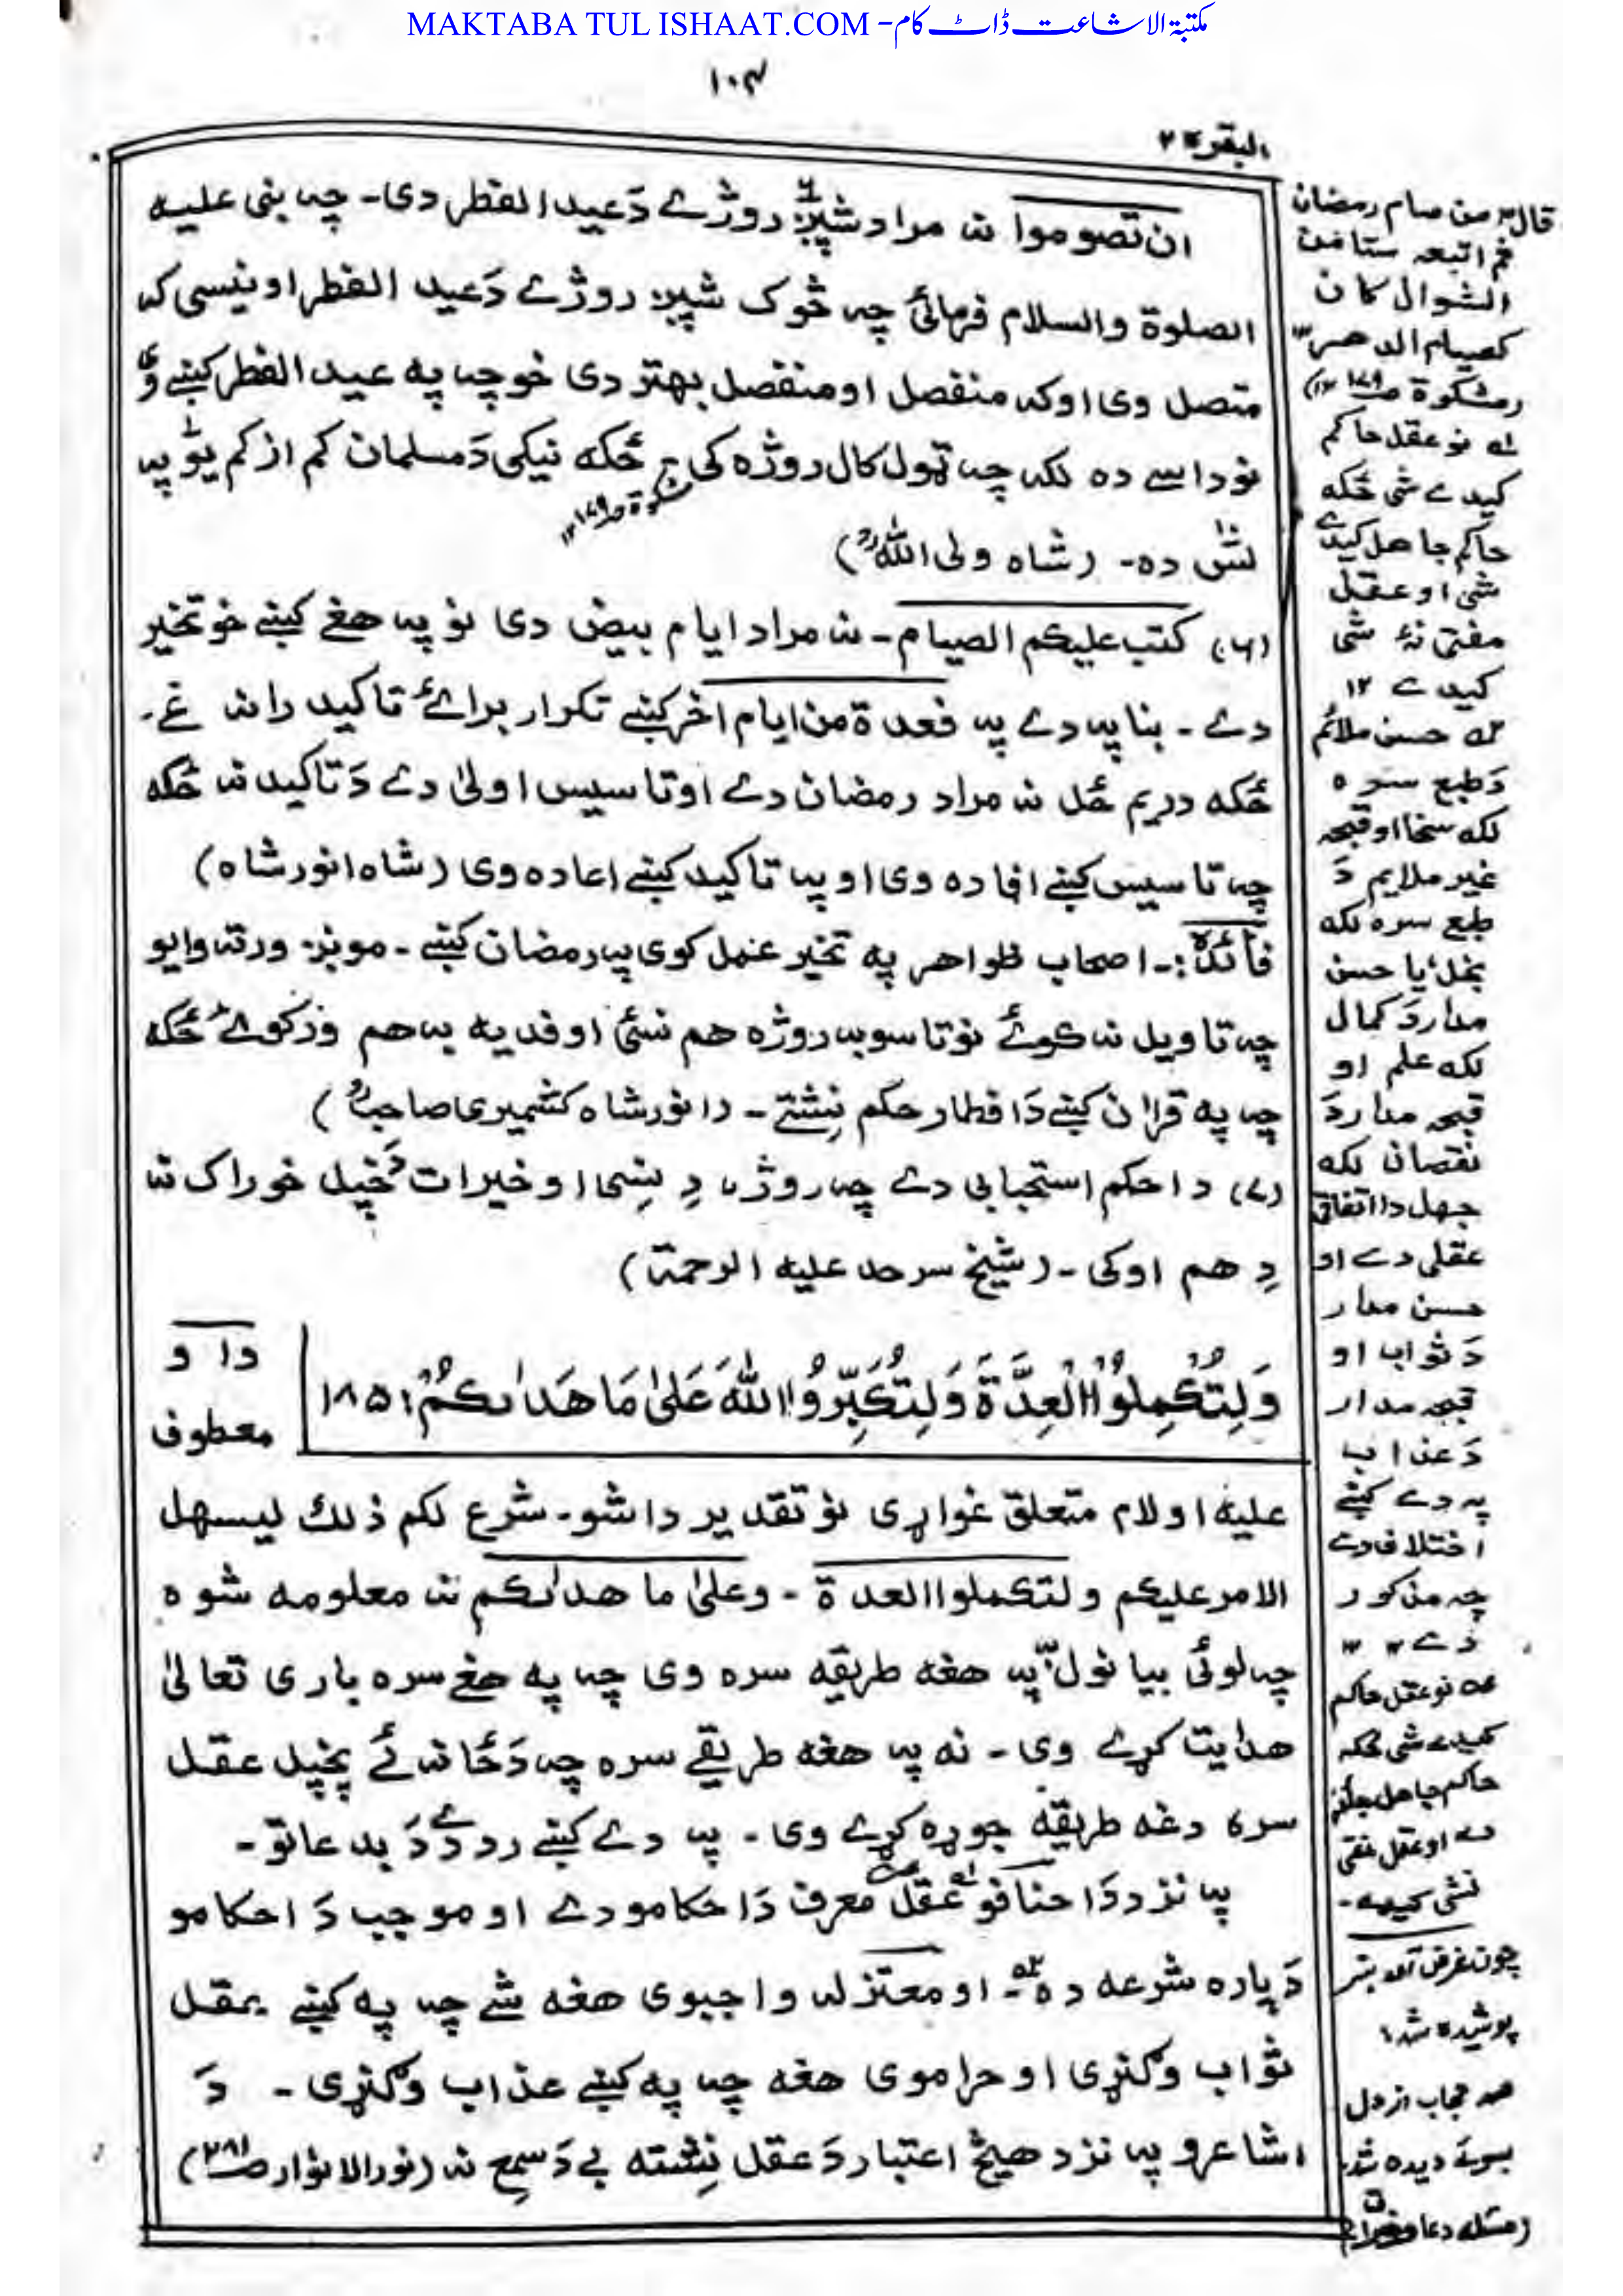 MAKTABA TUL ISHAAT.COM - مكتبة الاشاعت ڈاٹ کام
۱۰۴
البقرة ۲
ان تصوموا نہ مراد شپږ روژے دَ عید الفطر دی۔ چہ بنی علیہ
الصلوة والسلام فرمائی چہ څوک شپږ روژے دَ عید الفطر اونیسی کہ
متصل وی او کہ منفصل او منفصل بهتر دی خو چہ په عید الفطر کښے وی
نو داسے ده لکہ چہ ټول کال روژه کی ځکه نیکی دَ مسلمان کم از کم یو پہ
لس ده۔ (شاه ولی الله)
(۶) کتب علیکم الصیام۔ نہ مراد ایام بیض دی نو پہ هغے کښے خو تخیر
دے۔ بنا پہ دے پہ فعدة من ایام اخر کښے تکرار برائے تاکید رانہ غے۔
ځکه دریم ځل نہ مراد رمضان دے او تاسیس اولیٰ دے دَ تاکید نہ ځکه
چہ تاسیس کښے افاده وی او پہ تاکید کښے اعاده وی (شاه انور شاه)
فائدة:۔ اصحاب ظواهر په تخیر عمل کوی پہ رمضان کښے۔ موږ ورتہ وایو
چہ تاویل نہ کوئے نو تاسو بہ روژه هم نسئ او فدیه بہ هم ورکوئے ځکه
چہ په قرآن کښے دَ افطار حکم نشتے۔ (انور شاه کشمیری صاحب)
(۷) دا حکم استحبابی دے چہ روژہ دِ نسی او خیرات دَ خپل خوراک نہ
دِ هم اوکی۔ (شیخ سرحد علیه الرحمة)
وَلِتُكْمِلُوا الْعِدَّةَ وَلِتُكَبِّرُوا اللهَ عَلىٰ مَا هَدٰىكُمْ ۱۸۵
دا و
معطوف
علیه او لام متعلق غواړی نو تقدیر دا شو۔ شرع لکم ذلك لیسهل
الامر علیکم ولتکملوا العدة۔ وعلیٰ ما هدٰىکم نہ معلومه شوه
چہ لوئی بیانول پہ هغه طریقه سره وی چہ په هغے سره باری تعالیٰ
هدایت کړے وی۔ نه پہ هغه طریقے سره چہ دَ ځانہ ئے پخپل عقل
سره دغه طریقه جوړه کړے وی۔ پہ دے کښے رد دے دَ بدعاتو۔
پہ نزد دَ احنافو عقل معرف دَ احکامو دے او موجب دَ احکامو
دَپاره شرعه ده۔ او معتزله واجبوی هغه شے چہ په کښے عقل
ثواب وګنړی او حراموی هغه چہ په کښے عذاب وګنړی۔ دَ
اشاعرو پہ نزد هیڅ اعتبار دَ عقل نشته بے دَ سمع نہ (نور الانوار صـ)
قال من صام رمضان
ثم اتبعہ ستا من
الشوال کان
کصیام الدهر
(مشکوة
لہ نو عقل حاکم
کیدے شی ځکه
حاکم جاهل کیدے
شی او عقل
مفتی نہ شی
کیدے ۱۲
حسن ملائم
دَ طبع سره
لکه سخا او قبحہ
غیر ملایم دَ
طبع سره لکه
بخل، یا حسن
مدار دَ کمال
لکه علم او
قبحہ مدار دَ
نقصان لکه
جهل دا اتفاق
عقلی دے او
حسن مدار
دَ ثواب او
قبحہ مدار
دَ عذاب
پہ دے کښے
اختلاف دے
چہ مذکور
دے
نو عقل حاکم
کیدے شی ځکه
حاکم جاهل
دے او عقل
نشی کیدے۔
چون غرض آمد هنر
پوشیده شد
صد حجاب از دل
بسوئے دیده شد